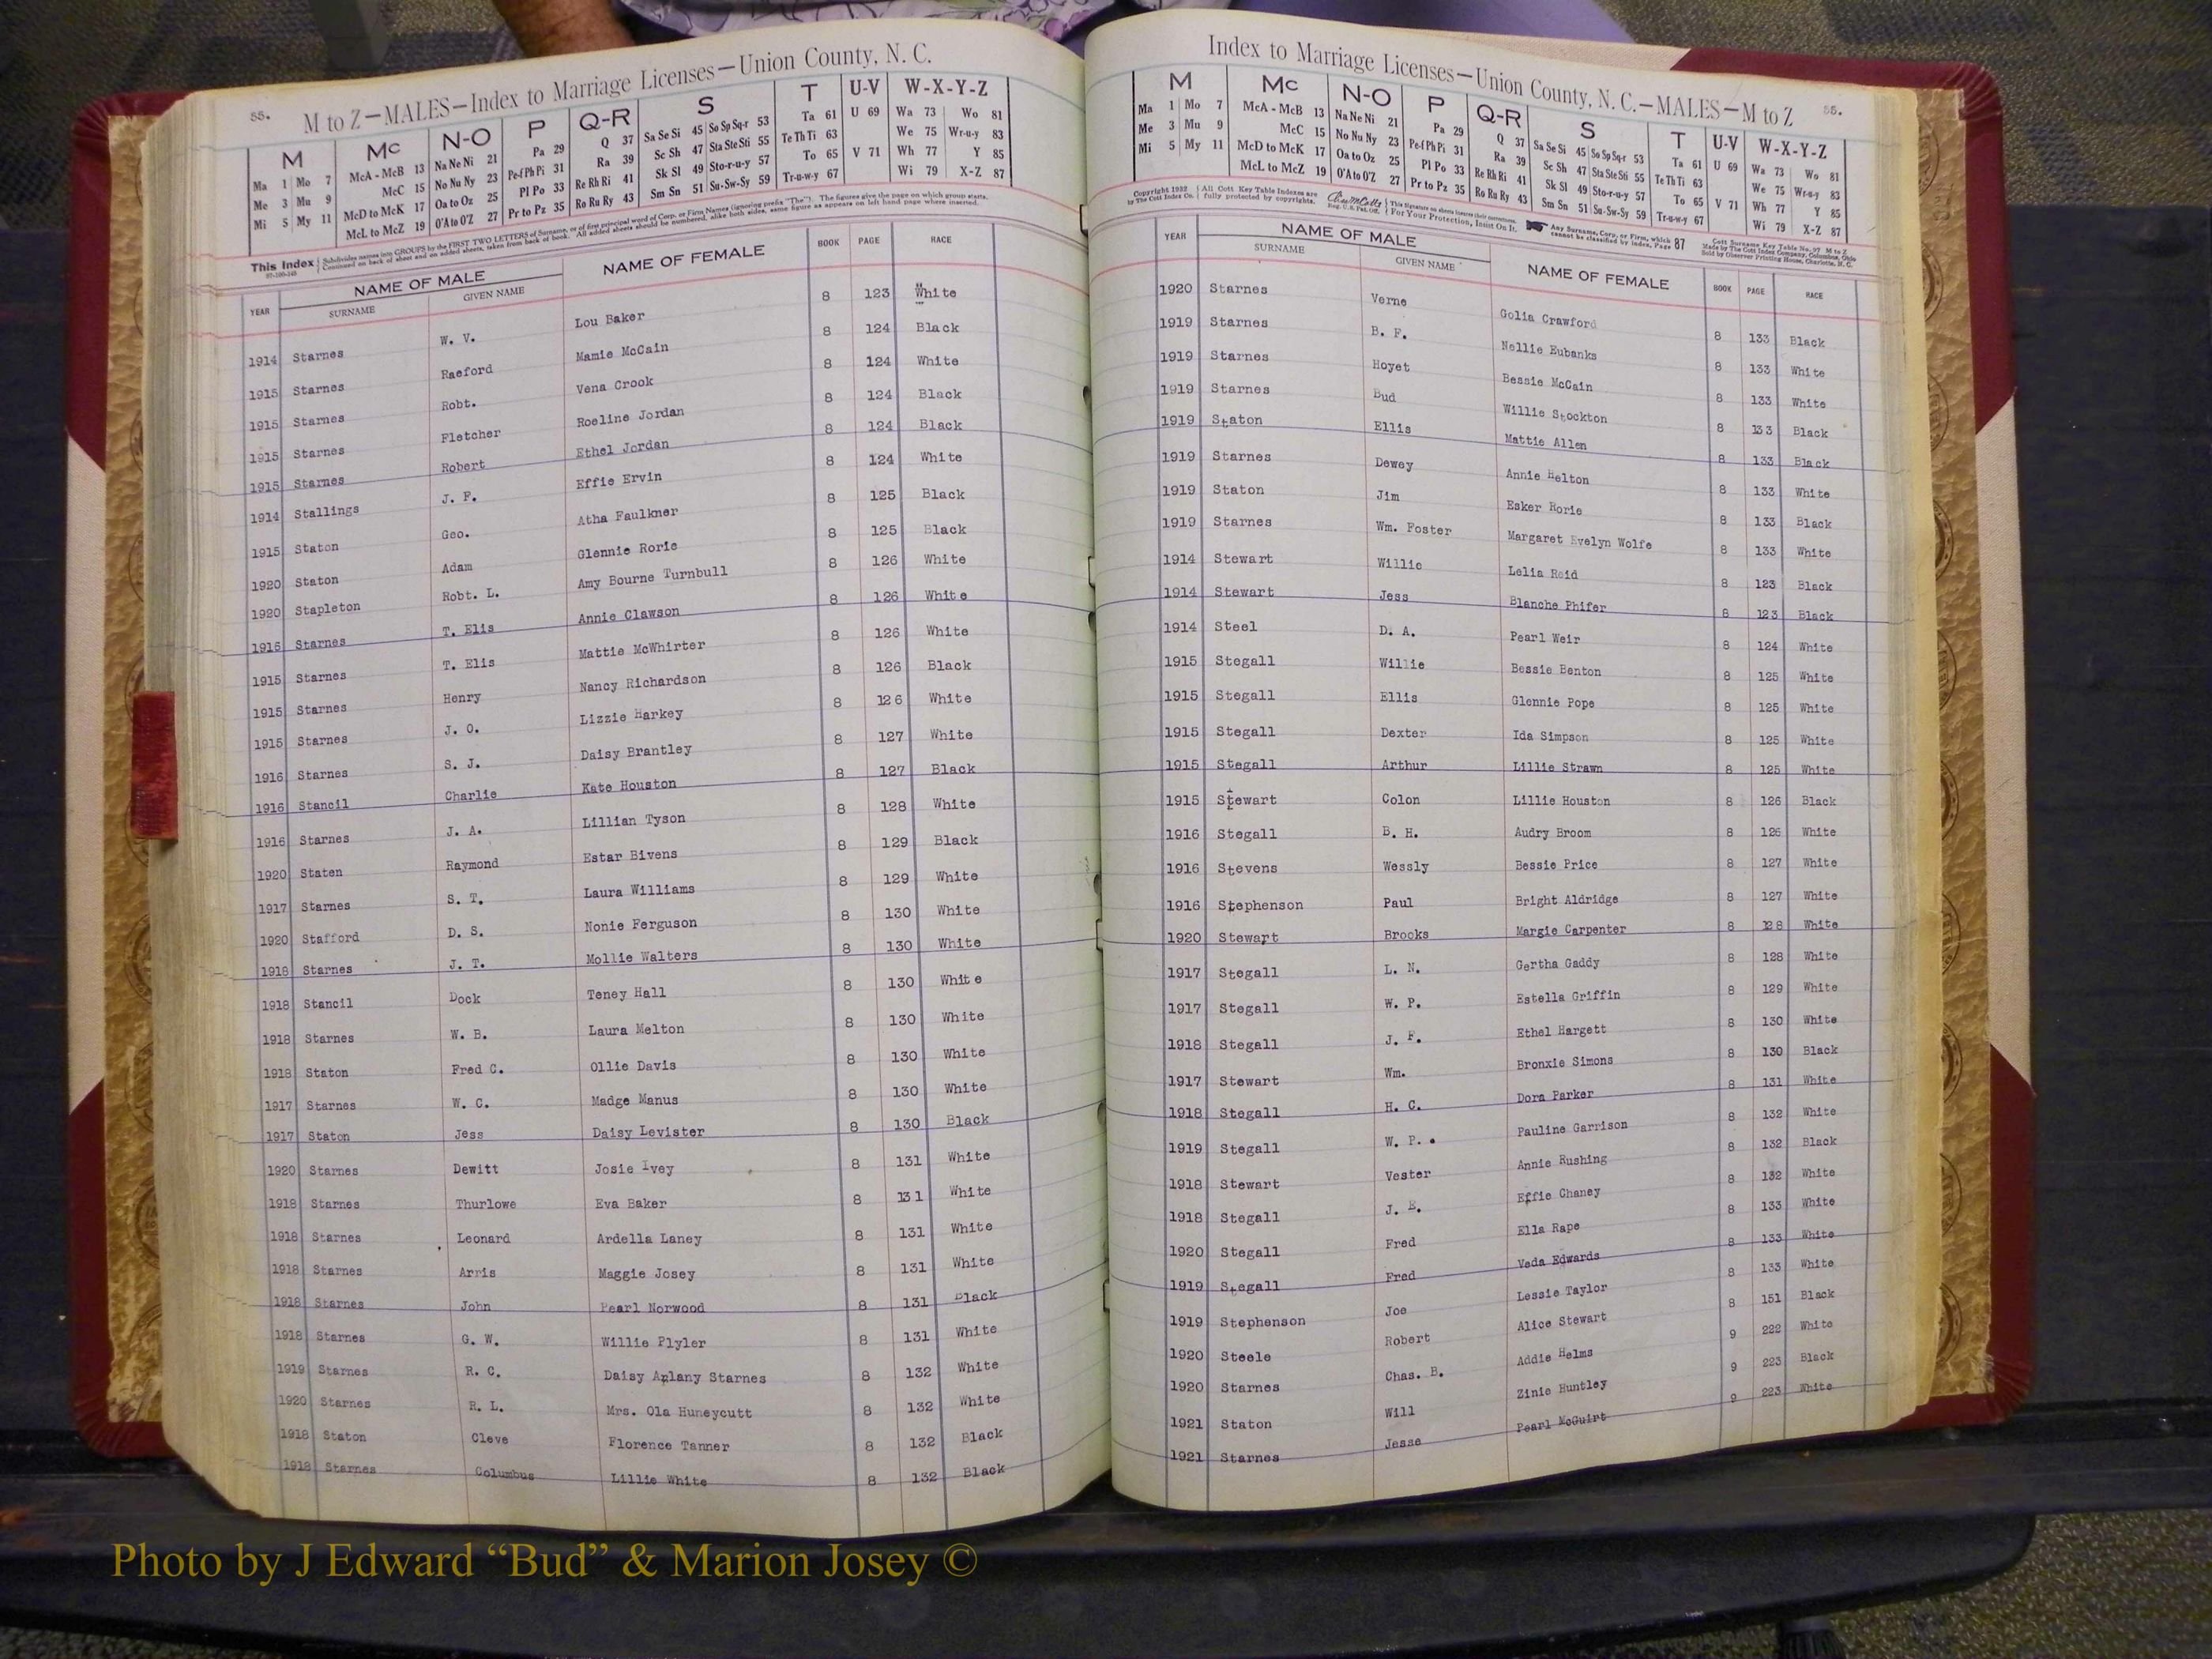 55.
M to Z—MALES—Index to Marriage Licenses—Union County, N. C.
M Mc N-O P Q-R S T U-V W-X-Y-Z
Ma 1 Mo 7 McA - McB 13 Na Ne Ni 21 Pa 29 Q 37 Sa Se Si 45 So Sp Sq-r 53 Ta 61 U 69 Wa 73 Wo 81
Me 3 Mu 9 McC 15 No Nu Ny 23 Pe-f Ph Pi 31 Ra 39 Sc Sh 47 Sta Ste Sti 55 Te Th Ti 63 We 75 Wr-u-y 83
Mi 5 My 11 McD to McK 17 Oa to Oz 25 Pl Po 33 Re Rh Ri 41 Sk Sl 49 Sto-r-u-y 57 To 65 V 71 Wh 77 Y 85
McL to McZ 19 O'A to O'Z 27 Pr to Pz 35 Ro Ru Ry 43 Sm Sn 51 Su-Sw-Sy 59 Tr-u-w-y 67 Wi 79 X-Z 87
This Index Subdivides names into GROUPS by the FIRST TWO LETTERS of Surname, or of first principal word of Corp. or Firm Names (ignoring prefix "The"). The figures give the page on which group starts.
Continued on back of sheet and on added sheets, taken from back of book. All added sheets should be numbered, alike both sides, same figure as appears on left hand page where inserted.
YEAR NAME OF MALE NAME OF FEMALE BOOK PAGE RACE
SURNAME GIVEN NAME
1914 Starnes W. V. Lou Baker 8 123 White
1915 Starnes Raeford Mamie McCain 8 124 Black
1915 Starnes Robt. Vena Crook 8 124 White
1915 Starnes Fletcher Roeline Jordan 8 124 Black
1915 Starnes Robert Ethel Jordan 8 124 Black
1914 Stallings J. F. Effie Ervin 8 124 White
1915 Staton Geo. Atha Faulkner 8 125 Black
1920 Staton Adam Glennie Rorie 8 125 Black
1920 Stapleton Robt. L. Amy Bourne Turnbull 8 126 White
1916 Starnes T. Elis Annie Clawson 8 126 White
1915 Starnes T. Elis Mattie McWhirter 8 126 White
1915 Starnes Henry Nancy Richardson 8 126 Black
1915 Starnes J. O. Lizzie Harkey 8 126 White
1916 Starnes S. J. Daisy Brantley 8 127 White
1916 Stancil Charlie Kate Houston 8 127 Black
1916 Starnes J. A. Lillian Tyson 8 128 White
1920 Staten Raymond Estar Bivens 8 129 Black
1917 Starnes S. T. Laura Williams 8 129 White
1920 Stafford D. S. Nonie Ferguson 8 130 White
1918 Starnes J. T. Mollie Walters 8 130 White
1918 Stancil Dock Teney Hall 8 130 White
1918 Starnes W. B. Laura Melton 8 130 White
1918 Staton Fred C. Ollie Davis 8 130 White
1917 Starnes W. C. Madge Manus 8 130 White
1917 Staton Jess Daisy Levister 8 130 Black
1920 Starnes Dewitt Josie Ivey 8 131 White
1918 Starnes Thurlowe Eva Baker 8 131 White
1918 Starnes Leonard Ardella Laney 8 131 White
1918 Starnes Arris Maggie Josey 8 131 White
1918 Starnes John Pearl Norwood 8 131 Black
1918 Starnes G. W. Willie Plyler 8 131 White
1919 Starnes R. C. Daisy Starnes 8 132 White
1920 Starnes R. L. Mrs. Ola Huneycutt 8 132 White
1918 Staton Cleve Florence Tanner 8 132 Black
1918 Starnes Columbus Lillie White 8 132 Black
Index to Marriage Licenses—Union County, N. C.—MALES—M to Z
55.
M Mc N-O P Q-R S T U-V W-X-Y-Z
Ma 1 Mo 7 McA - McB 13 Na Ne Ni 21 Pa 29 Q 37 Sa Se Si 45 So Sp Sq-r 53 Ta 61 U 69 Wa 73 Wo 81
Me 3 Mu 9 McC 15 No Nu Ny 23 Pe-f Ph Pi 31 Ra 39 Sc Sh 47 Sta Ste Sti 55 Te Th Ti 63 We 75 Wr-u-y 83
Mi 5 My 11 McD to McK 17 Oa to Oz 25 Pl Po 33 Re Rh Ri 41 Sk Sl 49 Sto-r-u-y 57 To 65 V 71 Wh 77 Y 85
McL to McZ 19 O'A to O'Z 27 Pr to Pz 35 Ro Ru Ry 43 Sm Sn 51 Su-Sw-Sy 59 Tr-u-w-y 67 Wi 79 X-Z 87
Copyright 1932 by The Cott Index Co. All Cott Key Table Indexes are fully protected by copyrights. Reg. U. S. Pat. Off. For Your Protection, Insist On It. Any Surname, Corp. or Firm, which cannot be classified by index, Page 87
Cott Surname Key Table No. 97 M to Z
Made by The Cott Index Company, Columbus, Ohio
Sold by Observer Printing House, Charlotte, N. C.
YEAR NAME OF MALE NAME OF FEMALE BOOK PAGE RACE
SURNAME GIVEN NAME
1920 Starnes Verne Golia Crawford 8 133 Black
1919 Starnes B. F. Nellie Eubanks 8 133 White
1919 Starnes Hoyet Bessie McCain 8 133 White
1919 Starnes Bud Willie Stockton 8 133 Black
1919 Staton Ellis Mattie Allen 8 133 Black
1919 Starnes Dewey Annie Helton 8 133 White
1919 Staton Jim Esker Rorie 8 133 Black
1919 Starnes Wm. Foster Margaret Evelyn Wolfe 8 133 White
1914 Stewart Willie Lelia Reid 8 123 Black
1914 Stewart Jess Blanche Phifer 8 123 Black
1914 Steel D. A. Pearl Weir 8 124 White
1915 Stegall Willie Bessie Benton 8 125 White
1915 Stegall Ellis Glennie Pope 8 125 White
1915 Stegall Dexter Ida Simpson 8 125 White
1915 Stegall Arthur Lillie Strawn 8 125 White
1915 Stewart Colon Lillie Houston 8 126 Black
1916 Stegall B. H. Audry Broom 8 126 White
1916 Stevens Wessly Bessie Price 8 127 White
1916 Stephenson Paul Bright Aldridge 8 127 White
1920 Stewart Brooks Margie Carpenter 8 128 White
1917 Stegall L. N. Gertha Gaddy 8 128 White
1917 Stegall W. P. Estella Griffin 8 129 White
1918 Stegall J. F. Ethel Hargett 8 130 White
1917 Stewart Wm. Bronxie Simons 8 130 Black
1918 Stegall H. C. Dora Parker 8 131 White
1919 Stegall W. P. Pauline Garrison 8 132 White
1918 Stewart Vester Annie Rushing 8 132 Black
1918 Stegall J. E. Effie Chaney 8 132 White
1920 Stegall Fred Ella Rape 8 133 White
1919 Stegall Fred Veda Edwards 8 133 White
1919 Stephenson Joe Lessie Taylor 8 133 White
1920 Steele Robert Alice Stewart 8 151 Black
1920 Starnes Chas. B. Addie Helms 9 222 White
1921 Staton Will Zinie Huntley 9 223 Black
1921 Starnes Jesse Pearl McGuirt 9 223 White
Photo by J Edward “Bud” & Marion Josey ©